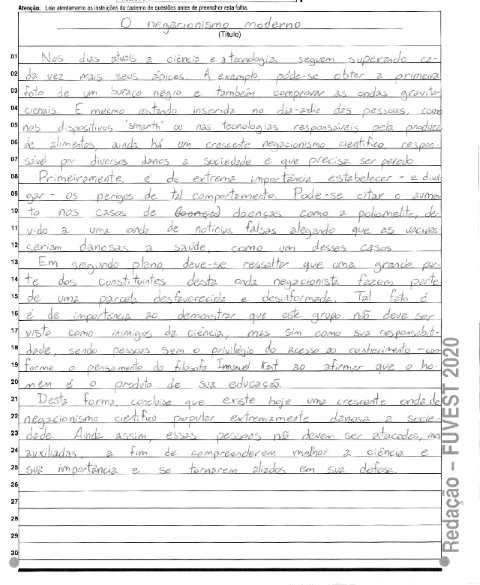 Atenção: Leia atentamente as instruções do caderno de questões antes de preencher esta folha.
O negacionismo moderno
(Título)
01 Nos dias atuais a ciência e a tecnologia seguem superando ca-
02 da vez mais seus ápices. A exemplo, pôde-se obter a primeira
03 foto de um buraco negro e também comprovar as ondas gravita-
04 cionais. E mesmo estando inserida no dia-a-dia das pessoas, como
05 nos dispositivos "smarth" ou nas tecnologias responsáveis pela produção
06 de alimentos, ainda há um crescente negacionismo científico respon-
07 sável por diversos danos a sociedade e que precisa ser parado.
08 Primeiramente, é de extrema importância estabelecer - e divul
09 gar - os perigos de tal comportamento. Pode-se citar o aumen-
10 to nos casos de doenças como a poliomelite, de-
11 vido a uma onda de notícias falsas alegando que as vacinas
12 seriam danosas a saúde, como um desses casos.
13 Em segundo plano, deve-se ressaltar que uma grande par-
14 te dos constituintes desta onda negacionista fazem parte
15 de uma parcela desfavorecida e desinformada. Tal fato é
16 é de importância ao demonstrar que este grupo não deve ser
17 visto como inimigos da ciência, mas sim como sua responsabili-
18 dade, sendo pessoas sem o privilégio do acesso ao conhecimento - con-
19 forme o pensamento do filósofo Imanuel Kant ao afirmar que o ho-
20 mem é o produto de sua educação.
21 Desta forma, conclui-se que existe hoje uma crescente onda de
22 negacionismo científico popular extremamente danosa a socie-
23 dade. Ainda assim, essas pessoas não devem ser atacadas, mas
24 auxiliadas, a fim de compreenderem melhor a ciência e
25 sua importância e se tornarem aliados em sua defesa.
26
27
28
29
30
Redação – FUVEST 2020